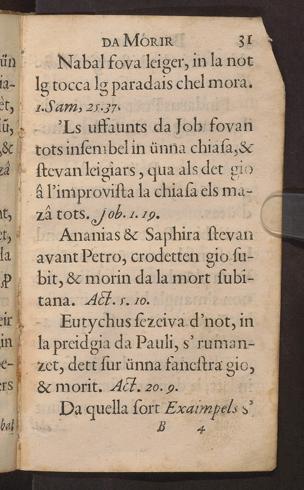 DA MORIR 31
Nabal fova leiger, in la not
lg tocca lg paradais chel mora.
1. Sam, 25. 37.
'Ls uffaunts da Job fovan
tots insembel in ünna chiasa, &
stevan leigiars, qua als det gio
â l'improvista la chiasa els ma-
zâ tots. Job. 1. 19.
Ananias & Saphira stevan
avant Petro, crodetten gio su-
bit, & morin da la mort subi-
tana. Act. 5. 10.
Eutychus sezeiva d'not, in
la preidgia da Pauli, s' ruman-
zet, dett sur ünna fanestra gio,
& morit. Act. 20. 9.
Da quella sort Exaimpels s'
B 4